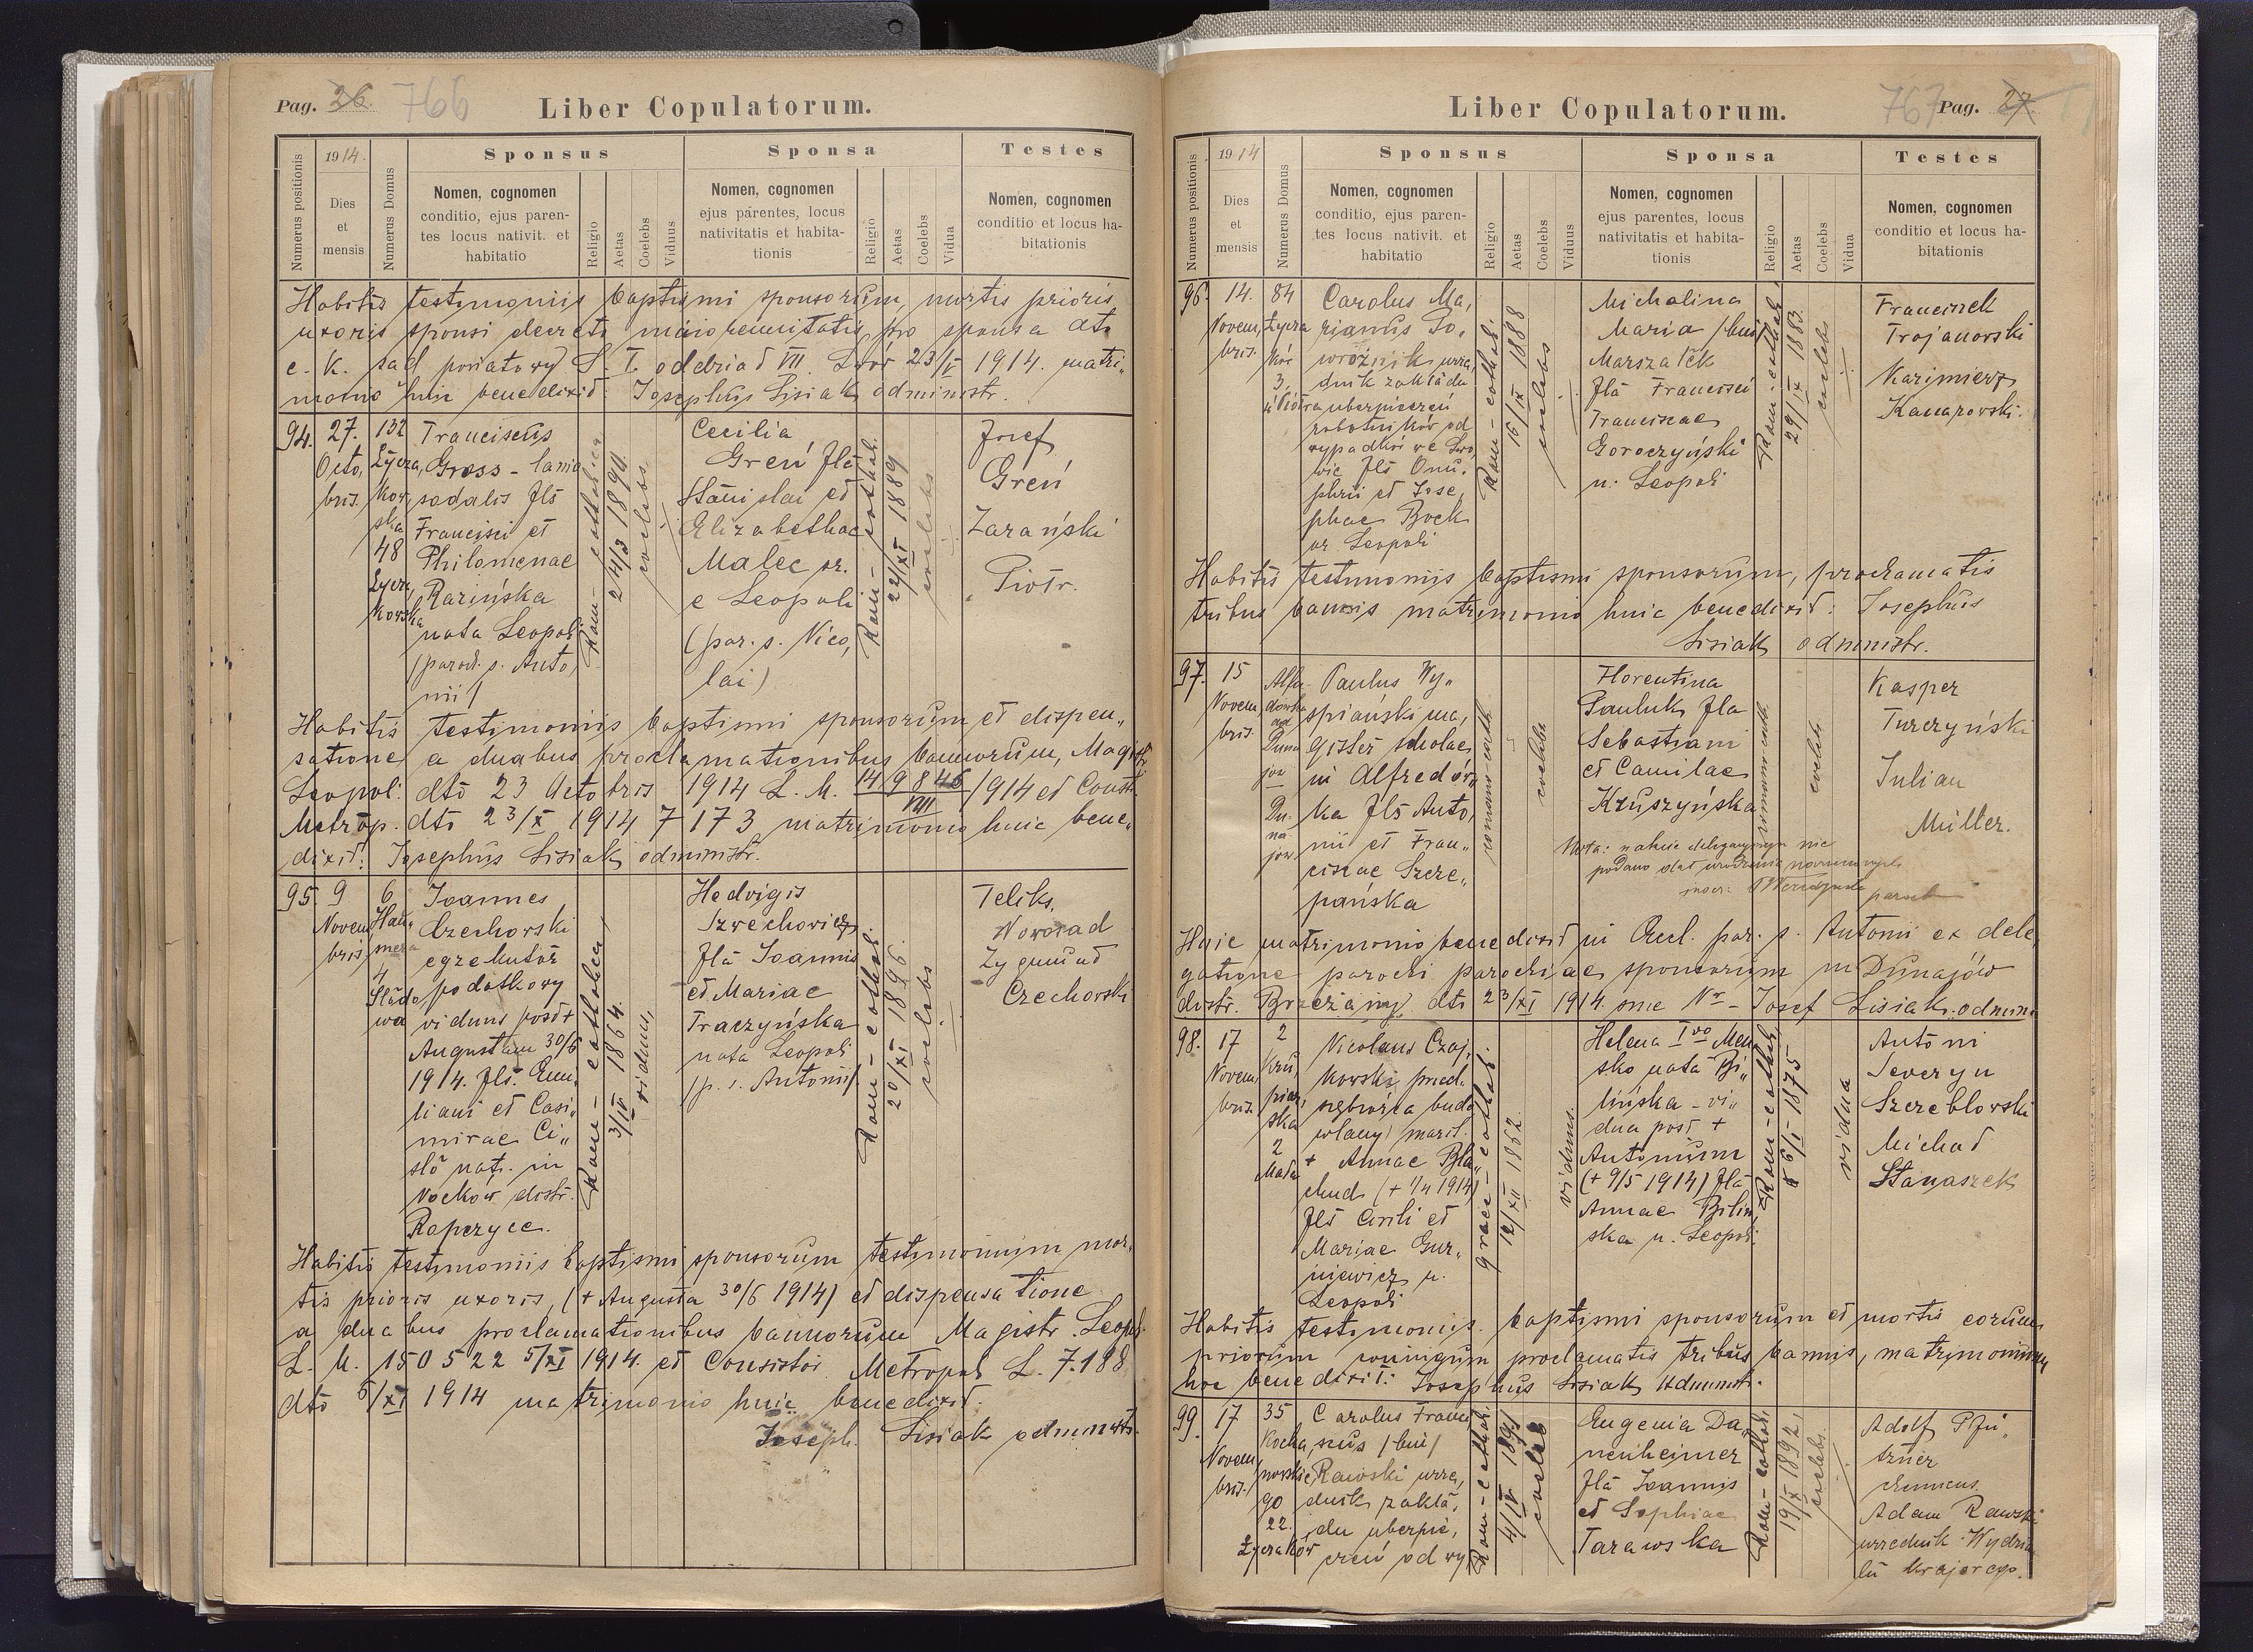 Pag. 26. 766
Liber Copulatorum.
Numerus positionis
1914.
Dies
et
mensis
Numerus Domus
Sponsus
Nomen, cognomen
conditio, ejus paren-
tes locus nativit. et
habitatio
Religio
Aetas
Coelebs
Viduus
Sponsa
Nomen, cognomen
ejus parentes, locus
nativitatis et habita-
tionis
Religio
Aetas
Coelebs
Vidua
Testes
Nomen, cognomen
conditio et locus ha-
bitationis
Habitis testimoniis baptismi sponsorum, mortis prioris
uxoris sponsi decreto maiorennitatis pro sponsa dto
c. K. sąd powiatowy S. I. oddział VII. Lwów 23/V 1914. matri„
monio huic benedixit: Josephus Lisiak administr.
94.
27.
Octo,
bris.
132
Łycza,
kow,
ska
48
Łycza,
kowska
Franciscus
Gross - lania
sodalis fls
Francisci et
Philomenae
Razińska
nata Leopoli
(paroch. s. Anto,
nii)
Rom - catholica
24/3 1890.
coelebs
Cecilia
Greń fla
Stanislai et
Elizabethae
Malec or.
e Leopoli
(par. s. Nico,
lai)
Rom - cathol.
22/XI 1889
coelebs
Josef
Greń
Zarański
Piotr.
Habitis testimoniis baptismi sponsorum et dispen„
satione a duabus proclamationibus bannorum, Magistr.
Leopol: dto 23 Octobris 1914 L. M. 149846/VIII /1914 et Consist.
Metrop. dto 23/X 1914 7173 matrimonio huic bene„
dixit: Josephus Lisiak administr.
95.
9
Novem
bris
6
4
Joannes
Czechowski
egzekutor
podatkowy
viduus post +
Augustam 30/6
1914. fls. Emi„
liani et Casi„
mirae Ci„
sło nat. in
distr.
Ropczyce.
Rom - catholica
3/V 1864.
viduus,
Hedvigis
Szwechowicz
fla Joannis
et Mariae
Traczyńska
nata Leopoli
(p. s. Antonii)
Rom - cathol.
20/XI 1896.
coelebs
Feliks,
Noworad
Zygmund
Czechowski
Habitis testimoniis baptismi sponsorum testimonium mor„
tis prioris uxoris, (+ Augusta 30/6 1914) et dispensatione
a duabus proclamationibus bannorum Magistr. Leopol.
L. M. 150522 5/XI 1914. et Consistor Metropol L. 7.188
dto 6/XI 1914 matrimonio huic benedixit:
Joseph. Lisiak administr.
Liber Copulatorum.
767 Pag. 27.
Numerus positionis
1914
Dies
et
mensis
Numerus Domus
Sponsus
Nomen, cognomen
conditio, ejus paren-
tes locus nativit. et
habitatio
Religio
Aetas
Coelebs
Viduus
Sponsa
Nomen, cognomen
ejus parentes, locus
nativitatis et habita-
tionis
Religio
Aetas
Coelebs
Vidua
Testes
Nomen, cognomen
conditio et locus ha-
bitationis
96.
14.
Novem,
bris.
84
Łycza
ków
3.
Carolus Ma,
rianus Do,
wroźnik, urzę,
dnik zakładu
ubezpieczeń
robotników od
wypadków we Lwo,
wie fls Onu,
phrii et Jose,
phae Bock
or. Leopoli
Rom - cathol.
15/IX 1888
coelebs
Michalina
Maria (bin)
Marszałek
fla Francisci
Franciscae
Goroczyński
n. Leopoli
Rom - cathol.
29/IX 1883.
coelebs
Francisek
Trojanowski
Kazimierz
Kanarowski.
Habitis testimoniis baptismi sponsorum, proclamatis
tribus bannis matrimonio huic benedixit: Josephus
Lisiak administr.
97.
15
Novem,
bris.
Alfre
dówka
ad
Duna
jów
Du.
na
jów
Paulus Wy„
spiański ma,
gister scholae
in Alfredów„
ka fls Anto,
nii et Fran„
ciscae Szcze„
pańska
romano-cath
coelebs
Florentina
Pauluk fla
Sebastiani
et Camilae
Kruszyńska
romano-cath
coelebs
Nota: nie
podano dat urodzenia
paroch
Kasper
Turczyński
Julian
Müller.
Huic matrimonio benedixit in Eccl. par. s. Antonii ex dele,
gatione parochi parochiae sponsorum in Dunajów
distr. Brzeżany, dto 23/XI 1914. sine Nr - Josef Lisiak. admin.
98.
17
Novem,
bris.
2
Kru
piar,
ska
2
Nicolaus Czaj,
kowski, pred.
siębiorca budo
wlany) marit.
+ Annae Bla„
chud (+ 1/4 1914)
fls Cirili et
Mariae Gur„
niewicz n.
Leopoli
graec - cathol.
12/XII 1862.
viduus.
Helena I voto Men
sko nata Bi„
lińska - vi„
dua post +
Antonium
(+ 9/5 1914) fla
Annae Bilin,
ska n. Leopoli.
Rom - cathol.
6/II - 1875
vidua
Antoni
Seweryn
Szczeblowski
Michał
Stanaszek
Habitis testimoniis baptismi sponsorum et mortis eorum
priorum coniugum proclamatis tribus bannis, matrimonium
hoc benedixit: Josephus Lisiak Administr.
99.
17
Novem
bris.
35
Kocha
nowskie
90
22.
Łyczaków
Carolus Franci
scus (bin)
Rawski urzę,
dnik zakła,
du ubezpie,
czeń od wy
Rom - cathol.
4/IV 1891
coelebs
Eugenia Da,
nenheimer
fla Joannis
et Sophiae
Tarawska
Rom - cathol.
19/X 1892.
coelebs.
Adolf Pfü„
tzner
chemicus.
Adam Rawski
urzednik Wydzia
łu krajowego.